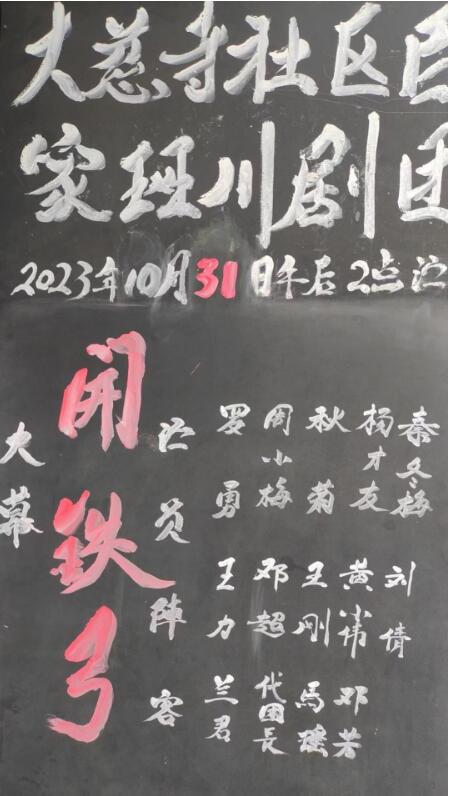 大慈寺社区百
家班川剧团
2023年10月31日午后2点演
大幕
開鉄弓
演员陣容
罗勇 王力 兰君
周小梅 邓超 代团長
秋菊 王刚 馬瑶
杨才友 黄小伟 邓
秦冬梅 刘倩